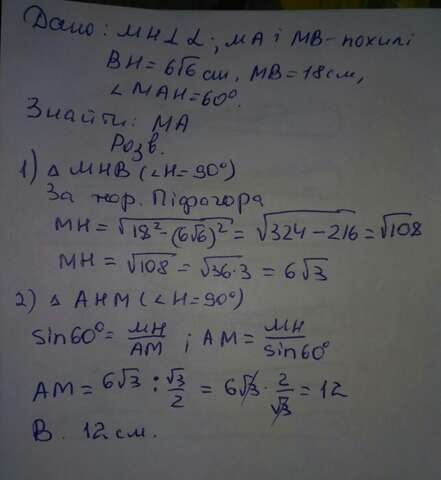 Дано: MH⊥α; MA і MB-похилі
BH=6√6 см, MB=18см,
∠MAH=60°.
Знайти: MA
Розв.
1) △ MHB (∠H=90°)
За теор. Піфагора
MH=√(18²-(6√6)²)=√(324-216)=√108
MH=√108=√(36·3)=6√3
2) △ AHM (∠H=90°)
sin60°=MH/AM ; AM=MH/sin60°
AM=6√3:√3/2=6√3·2/√3=12
В. 12см.